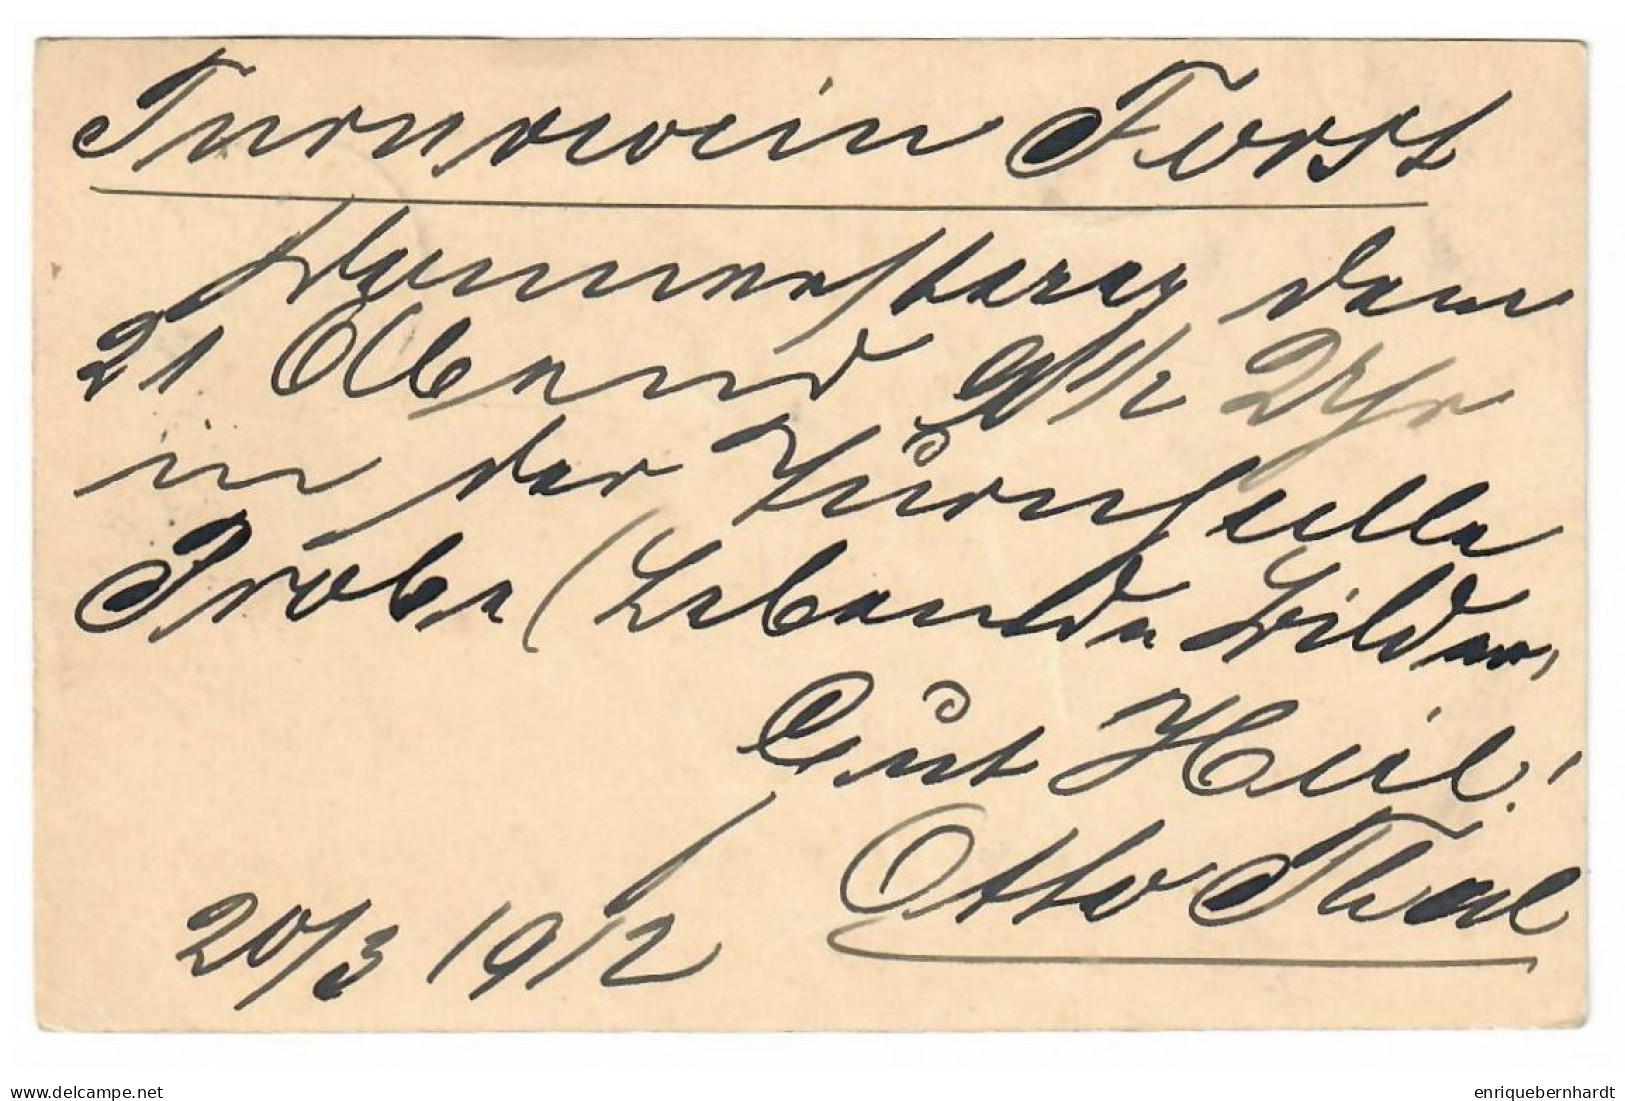 Turnverein Forst
Donnerstag den
21 Abend 9 1/2 Uhr
in der Turnhalle
Probe (Lebende Bilder,
Gut Heil!
Otto Thal
20/3 1912
www.delcampe.net
enriquebernhardt